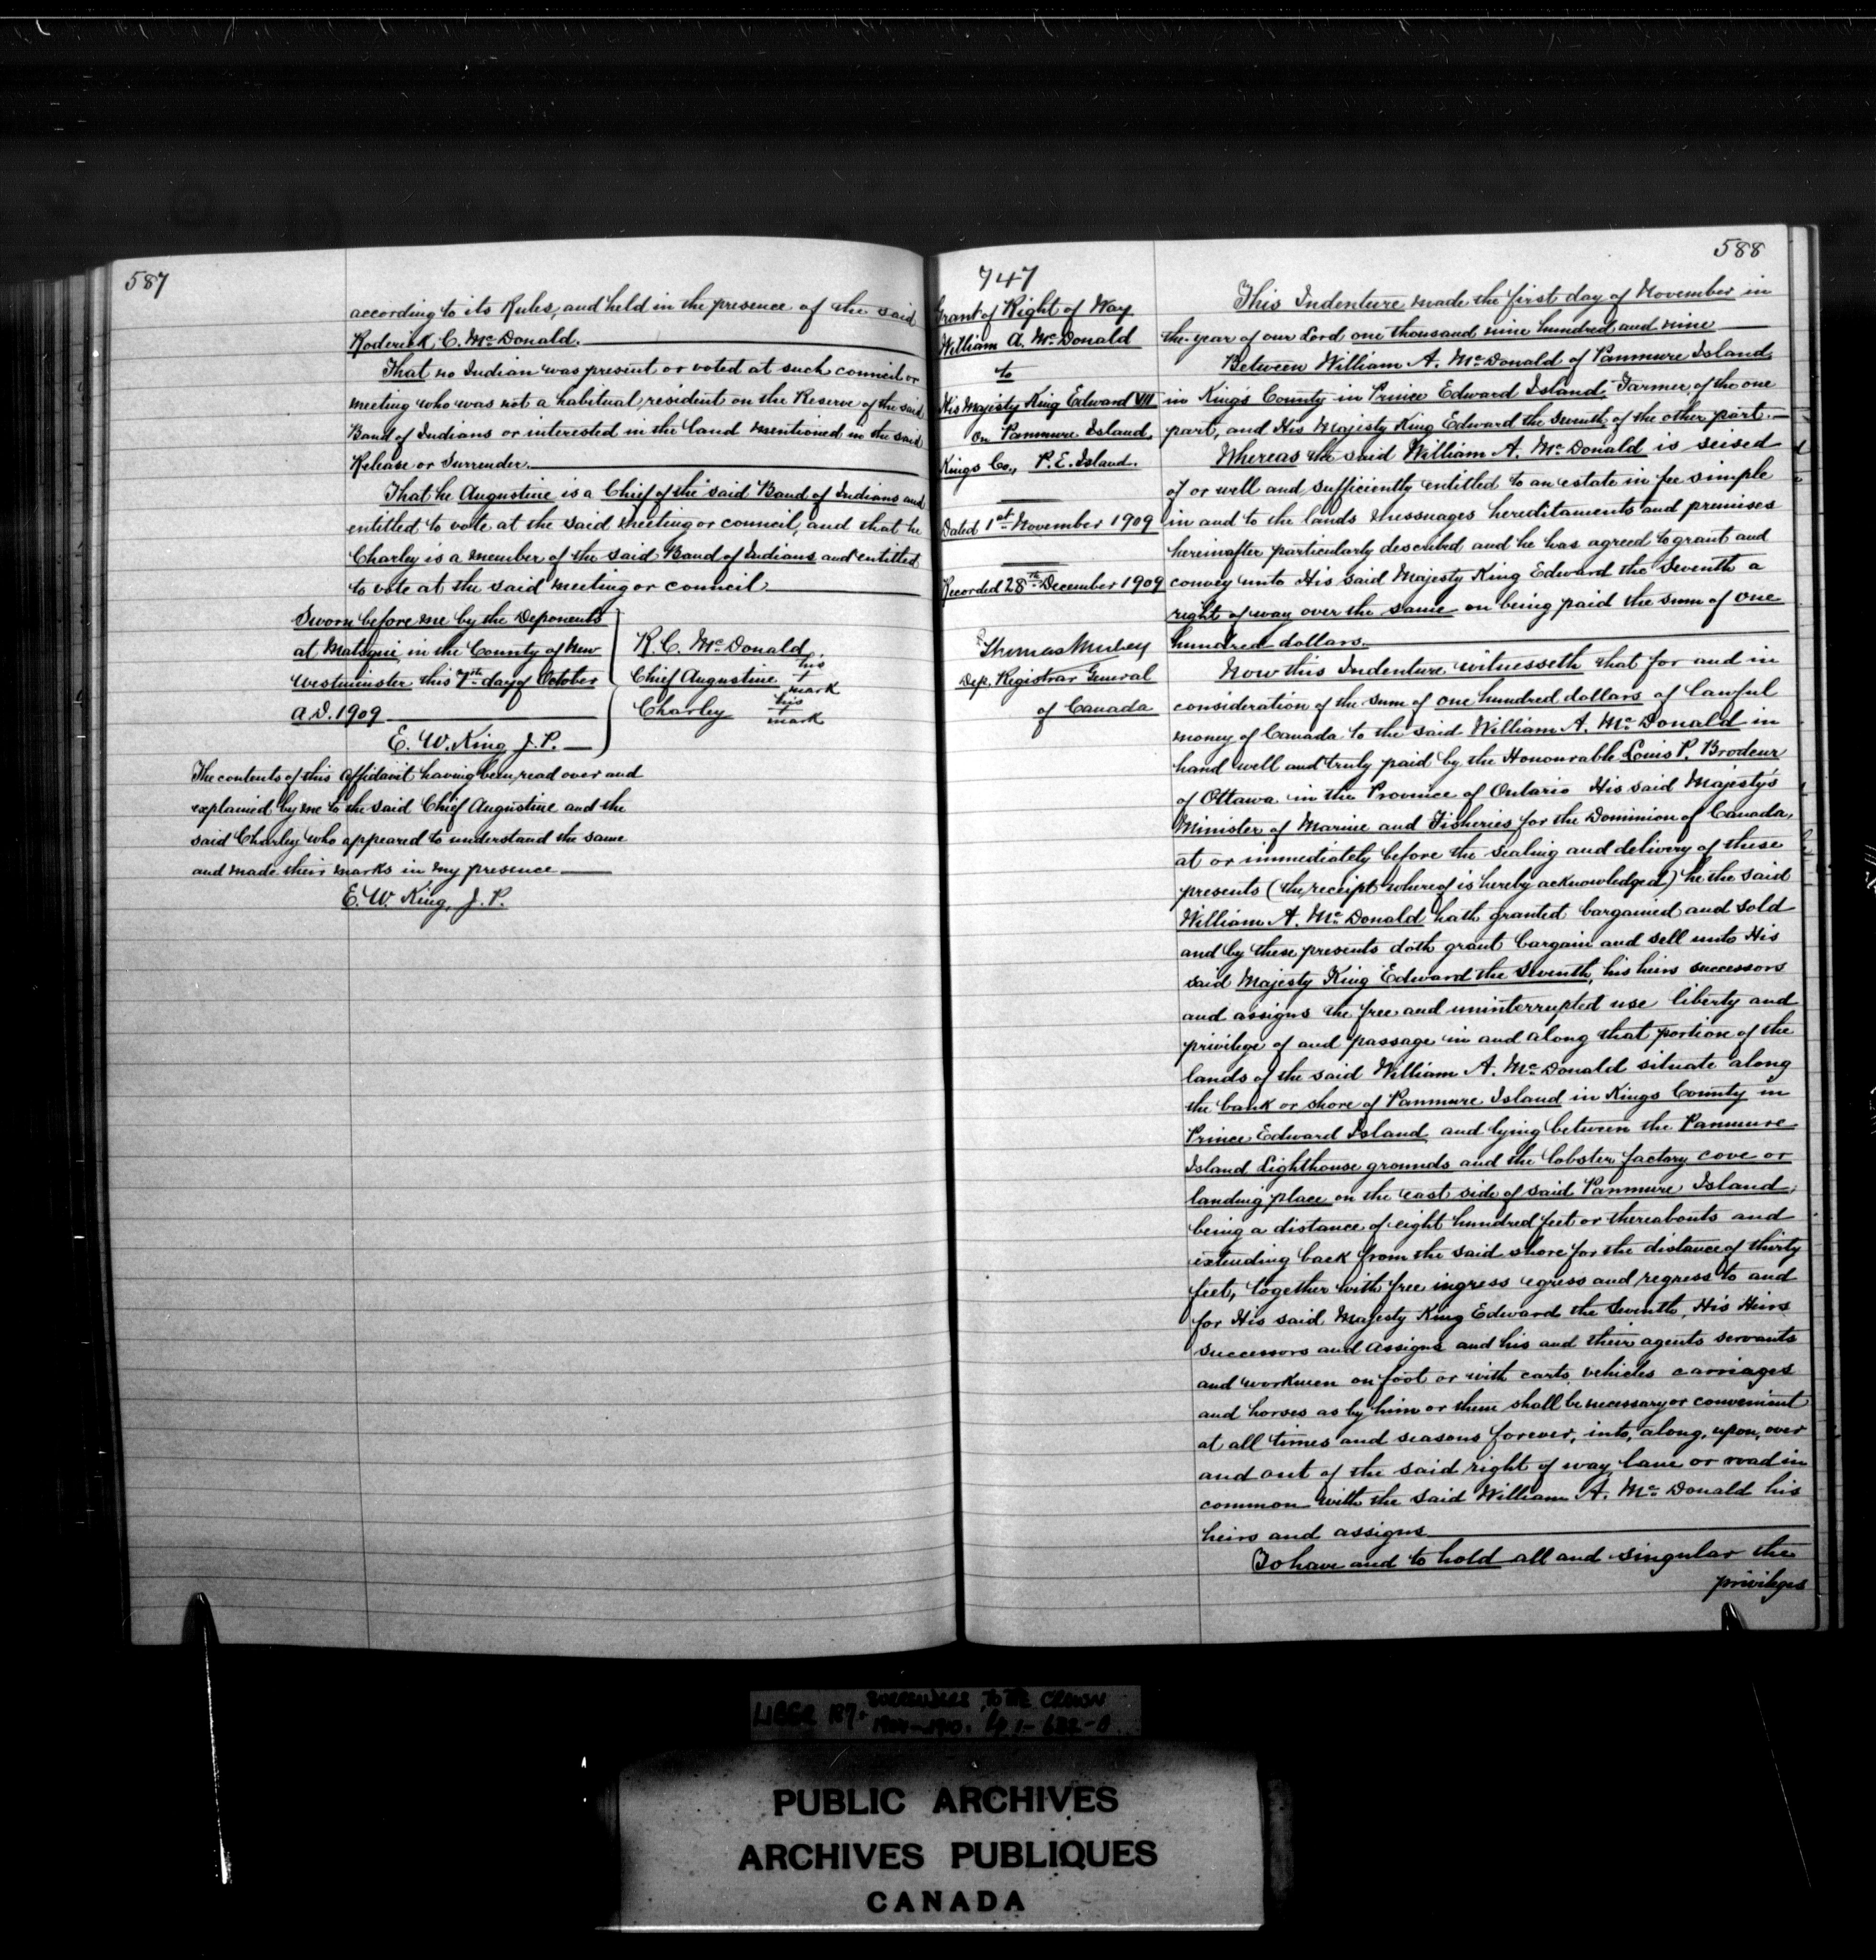 587
according to its Rules, and held in the presence of the said
Roderick C. McDonald.
That no Indian was present or voted at such council or
meeting who was not a habitual resident on the Reserve of the said
Band of Indians or interested in the land mentioned in the said
Release or Surrender.
That he Augustine is a Chief of the said Band of Indians and
entitled to vote at the said meeting or council, and that he
Charley is a member of the said Band of Indians and entitled
to vote at the said meeting or council
Sworn before me by the Deponents
at Matsqui in the County of New
Westminster this 7th day of October
A.D. 1909
E. W. King J.P.
R. C. McDonald
Chief Augustine his + mark
Charley his + mark
The contents of this Affidavit having been read over and
explained by me to the said Chief Augustine and the
said Charley who appeared to understand the same
and made their marks in my presence
E. W. King, J.P.
588
747
Grant of Right of Way
William A. McDonald
to
His Majesty King Edward VII
On Panmure Island,
Kings Co., P. E. Island.
Dated 1st November 1909
Recorded 28th December 1909
Thomas Mulvey
Dep. Registrar General
of Canada
This Indenture made the first day of November in
the year of our Lord one thousand nine hundred and nine
Between William A. McDonald of Panmure Island
in Kings County in Prince Edward Island, Farmer, of the one
part, and His Majesty King Edward the Seventh of the other part.
Whereas the said William A. McDonald is seised
of or well and sufficiently entitled to an estate in fee simple
in and to the lands messuages hereditaments and premises
hereinafter particularly described and he has agreed to grant and
convey unto His said Majesty King Edward the Seventh a
right of way over the same on being paid the sum of one
hundred dollars.
Now this Indenture witnesseth that for and in
consideration of the sum of one hundred dollars of lawful
money of Canada to the said William A. McDonald in
hand well and truly paid by the Honourable Louis P. Brodeur
of Ottawa in the Province of Ontario His said Majesty's
Minister of Marine and Fisheries for the Dominion of Canada,
at or immediately before the sealing and delivery of these
presents (the receipt whereof is hereby acknowledged) he the said
William A. McDonald hath granted bargained and sold
and by these presents doth grant bargain and sell unto His
said Majesty King Edward the Seventh, his heirs successors
and assigns the free and uninterrupted use liberty and
privilege of and passage in and along that portion of the
lands of the said William A. McDonald situate along
the bank or shore of Panmure Island in Kings County in
Prince Edward Island and lying between the Panmure
Island Lighthouse grounds and the lobster factory cove or
landing place on the east side of said Panmure Island,
being a distance of eight hundred feet or thereabouts and
extending back from the said shore for the distance of thirty
feet, together with free ingress egress and regress to and
for His said Majesty King Edward the Seventh, His Heirs
successors and Assigns and his and their agents servants
and workmen on foot or with carts vehicles carriages
and horses as by him or them shall be necessary or convenient
at all times and seasons forever, into, along, upon, over
and out of the said right of way lane or road in
common with the said William A. McDonald his
heirs and assigns
To have and to hold all and singular the
privileges
LIBER 187. SURRENDERS TO THE CROWN
PUBLIC ARCHIVES
ARCHIVES PUBLIQUES
CANADA